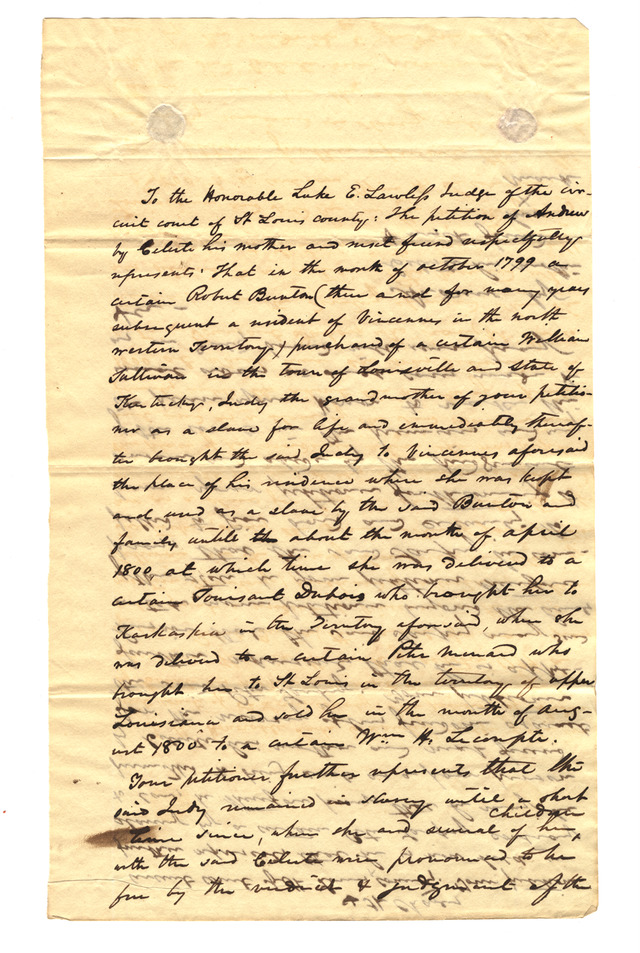 To the Honorable Luke E. Lawless Judge of the cir-
cuit court of St Louis county: The petition of Andrew
by Celeste his mother and next friend respectfully
represents: That in the month of october 1799 a
certain Robert Bunton (then and for many years
subsequent a resident of Vincennes in the north
western Territory) purchased of a certain William
Sullivan in the town of Louisville and state of
Kentucky, Judy the grandmother of your petitio-
ner as a slave for life and immediately thereaf-
ter brought the said Judy to Vincennes aforesaid
the place of his residence where she was kept
and used as a slave by the said Bunton and
family untill the about the month of april
1800, at which time she was delivered to a
certain Tousant Dubois who brought her to
Kaskaskia in the Territory aforesaid, where she
was delivered to a certain Peter Menard who
brought her to St Louis in the territory of upper
Louisiana and sold her in the month of Aug-
ust 1800 to a certain Wm. H. Lecompte.
Your petitioner further represents that the
said Judy remained in slavery until a short
time since, when she and several of her children
with the said Celeste were pronounced to be
free by the verdict & Judgment of the